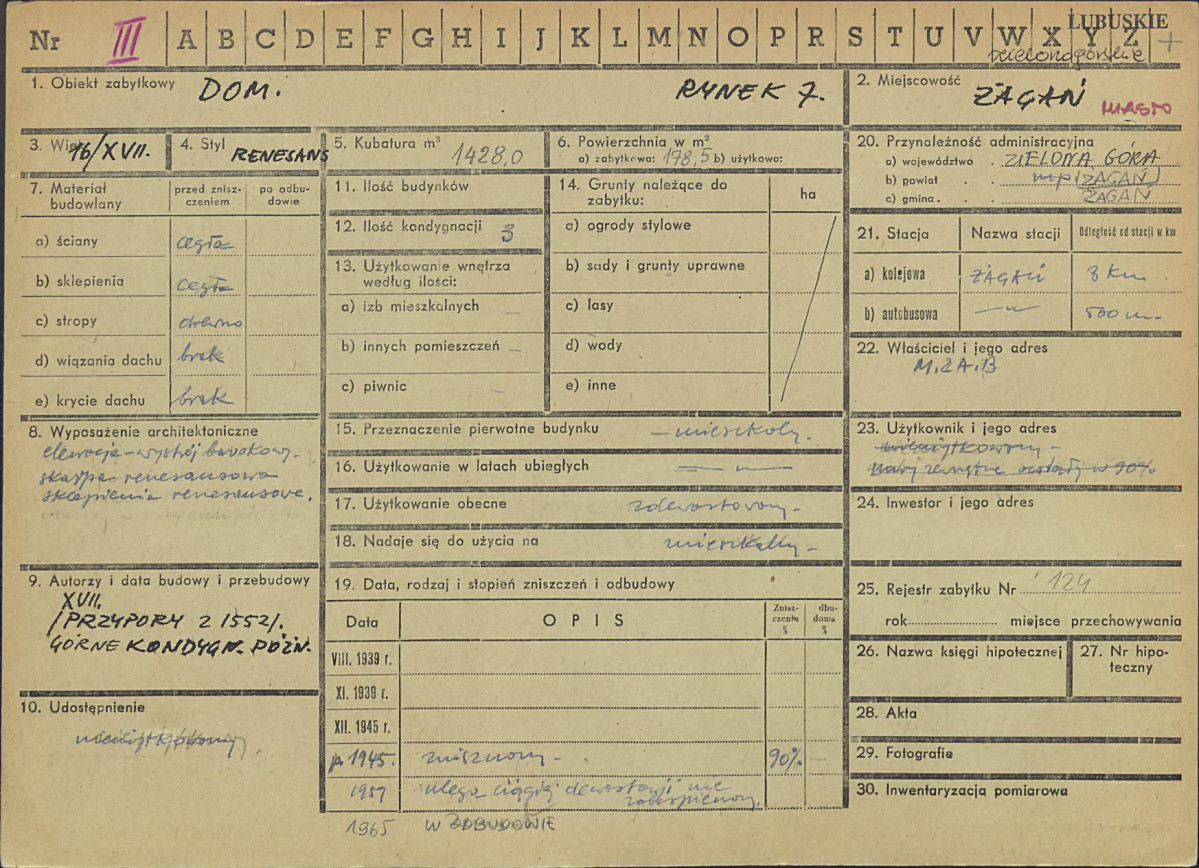 Nr III A B C D E F G H I J K L M N O P R S T U V W X Y Z
LUBUSKIE
zielonogórskie
1. Obiekt zabytkowy DOM. RYNEK 7.
2. Miejscowość ŻAGAŃ MIASTO
3. Wiek 16/XVII.
4. Styl RENESANS
5. Kubatura m³ 1428,0
6. Powierzchnia w m²
a) zabytkowa: 178,5 b) użytkowa:
20. Przynależność administracyjna
a) województwo ZIELONA GÓRA
b) powiat (ŻAGAŃ)
c) gmina ŻAGAŃ
7. Materiał budowlany
przed zniszczeniem
po odbudowie
a) ściany cegła
b) sklepienia cegła
c) stropy drewno
d) wiązania dachu brak
e) krycie dachu brak
11. Ilość budynków
12. Ilość kondygnacji 3
13. Użytkowanie wnętrza
według ilości:
a) izb mieszkalnych —
b) innych pomieszczeń —
c) piwnic
14. Grunty należące do
zabytku:
ha
a) ogrody stylowe
b) sady i grunty uprawne
c) lasy
d) wody
e) inne
21. Stacja Nazwa stacji Odległość od stacji w km
a) kolejowa ŻAGAŃ 3 km.
b) autobusowa —„— 500 m.
22. Właściciel i jego adres
M.Z.A.B
8. Wyposażenie architektoniczne
elewacja - wystrój barokowy.
skarpa renesansowa
sklepienia renesansowe.
15. Przeznaczenie pierwotne budynku —mieszkaln.
16. Użytkowanie w latach ubiegłych —„—
17. Użytkowanie obecne zdewastowany-
18. Nadaje się do użycia na mieszkalny-
23. Użytkownik i jego adres
w 90%
24. Inwestor i jego adres
9. Autorzy i data budowy i przebudowy
XVII.
/PRZYPORY Z 1552/.
GÓRNE KONDYGN. PÓŹN.
19. Data, rodzaj i stopień zniszczeń i odbudowy
Data OPIS Zniszczenia % dbudowa %
VIII. 1939 r.
XI. 1939 r.
XII. 1945 r.
p. 1945. zniszczony- 90%
1959 ulega ciągłej dewastacji nie
zabezpieczony.
1965 W ODBUDOWIE
25. Rejestr zabytku Nr 124
rok miejsce przechowywania
26. Nazwa księgi hipotecznej
27. Nr hipoteczny
10. Udostępnienie
nieużytkowany
28. Akta
29. Fotografie
30. Inwentaryzacja pomiarowa